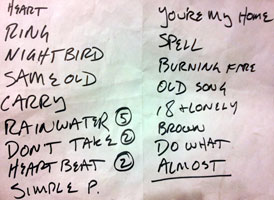 HEART
RING
NIGHTBIRD
SAME OLD
CARRY
RAINWATER 5
DONT TAKE 2
HEARTBEAT 2
SIMPLE P.
YOU'RE MY HOME
SPELL
BURNING FIRE
OLD SONG
18 + LONELY
BROWN
DO WHAT
ALMOST